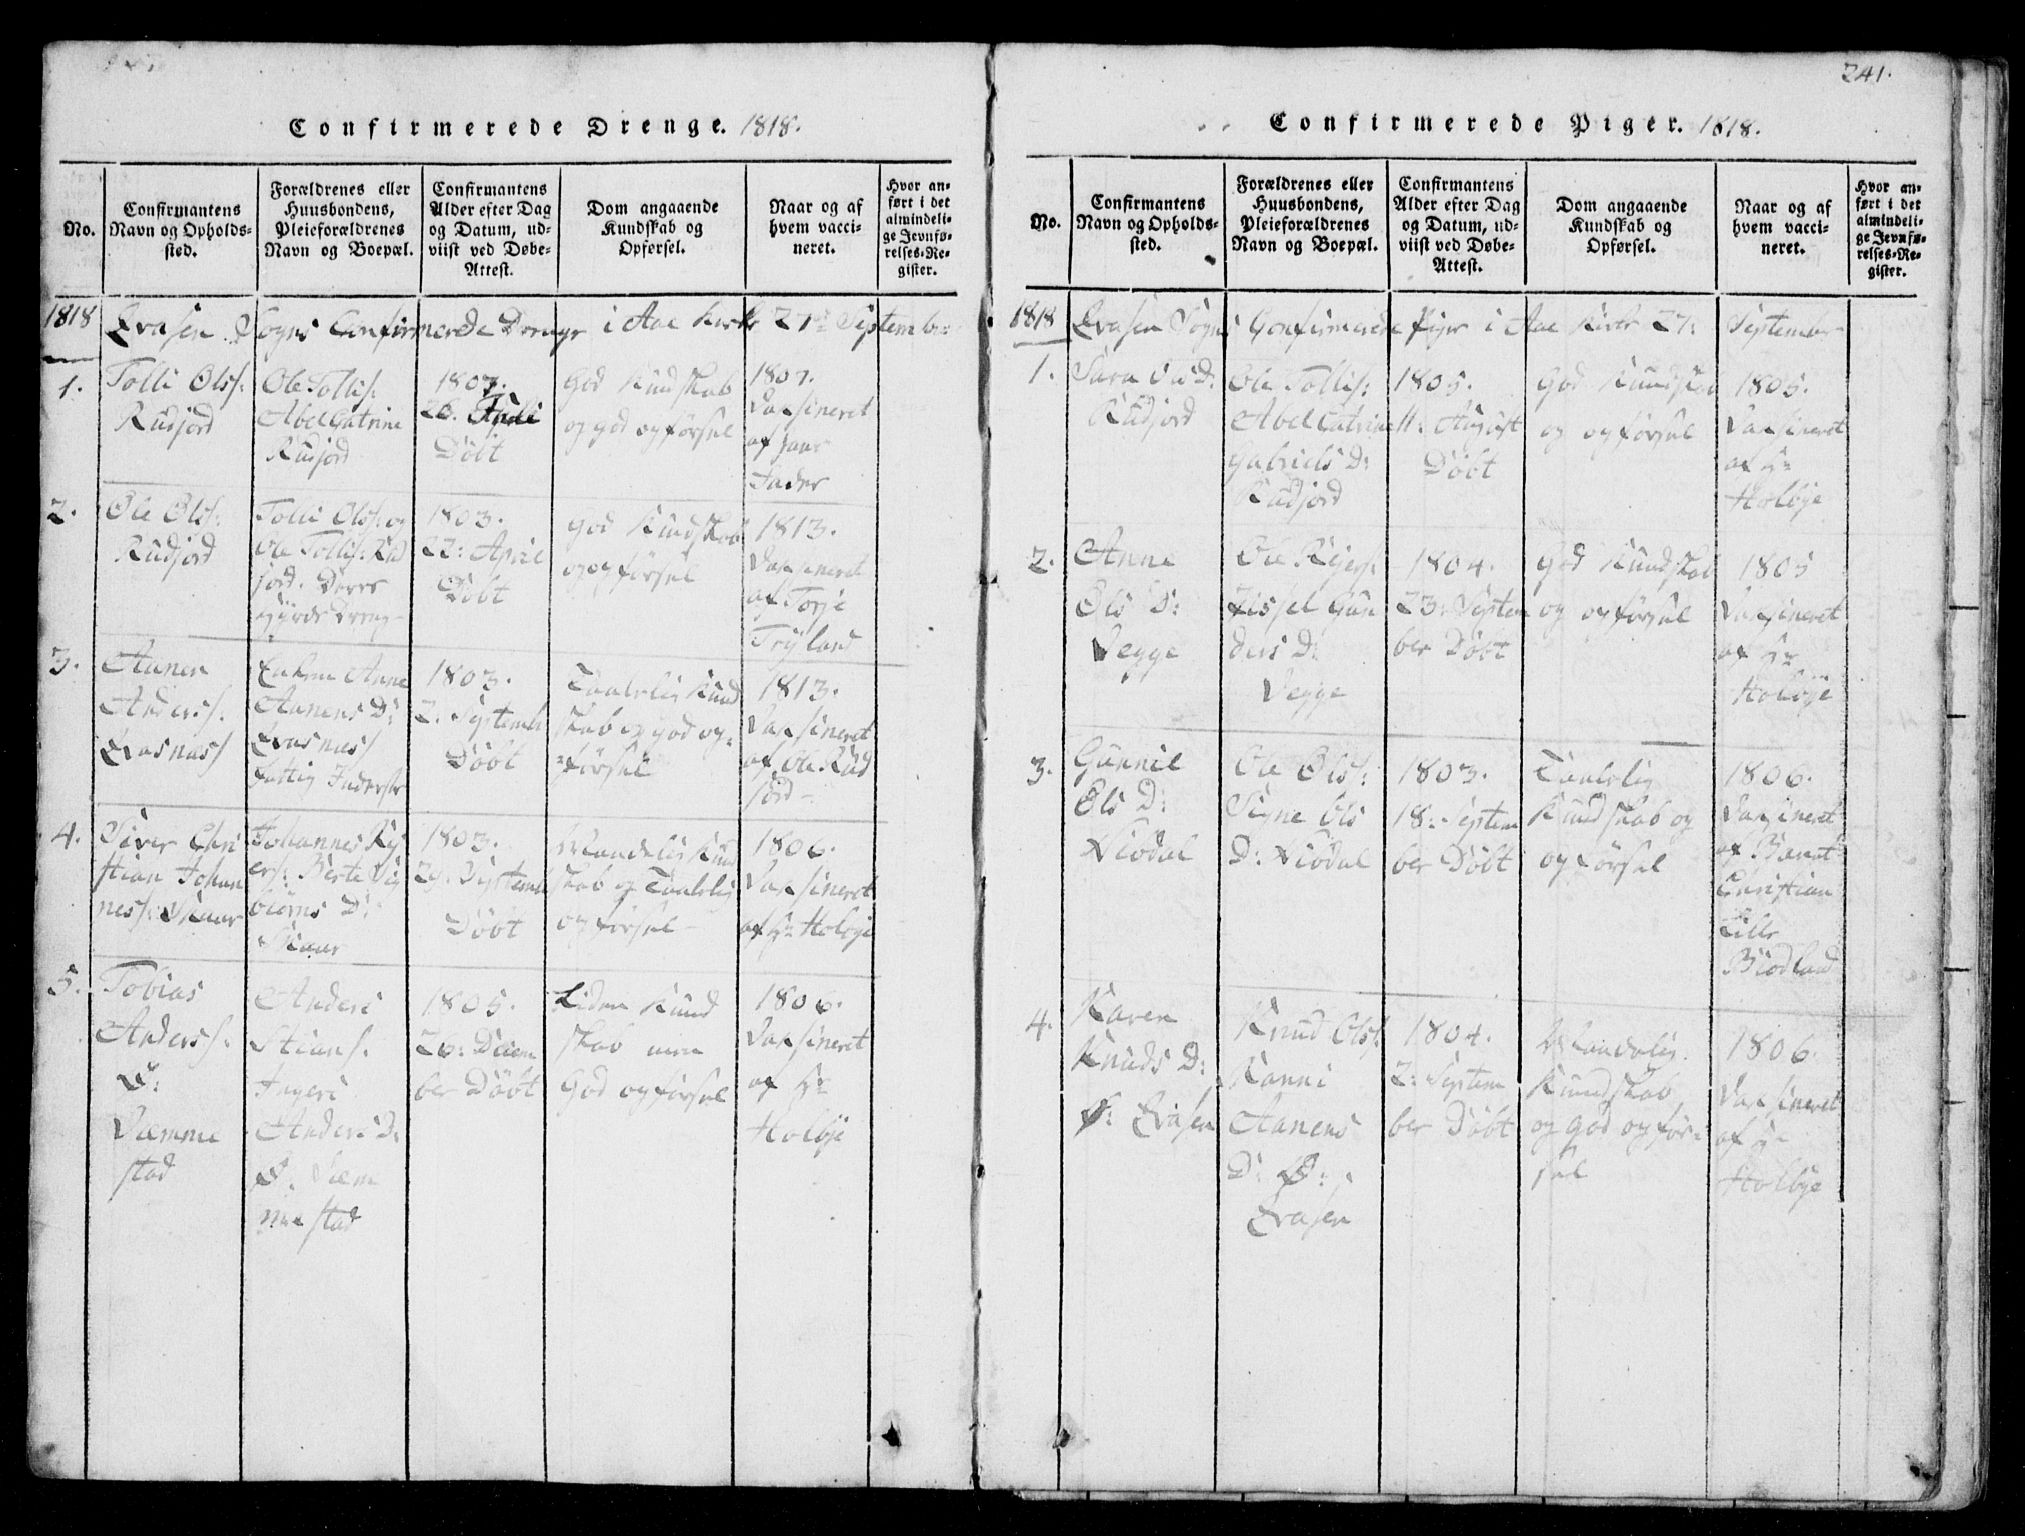 241.
Confirmerede Drenge. 1818.
No.
Confirmantens
Navn og Opholds-
sted.
Forældrenes eller
Huusbondens,
Pleieforældrenes
Navn og Boepæl.
Confirmantens
Alder efter Dag
og Datum, ud-
viist ved Døbe-
Attest.
Dom angaaende
Kundskab og
Opførsel.
Naar og af
hvem vacci-
neret.
Hvor an-
ført i det
almindeli-
ge Jevnfø-
relses-Re-
gister.
1818 Qvasen Sogns Confirmerede Drenge i Aae Kirke 27de September
1.
Tolli Ols:
Rudjord
Ole Tollis:
Abel Catrine
Rudjord
1803.
26. Juli
Döbt
God Kundskab
og god opförsel
1807.
Vaxsineret
af
2.
Ole Ols:
Rudjord
Tolli Ols: og
Ole Tollis: Rud
jord. Deres
1803.
22: April
Döbt
God Kundskab
og opförsel
1813.
Vaxsineret
af Torje
Tryland
3.
Aanen
Anders:
Qvasness
Enken Anne
Aanens D:
Qvasness
fattig
1803.
2. Septemb
Döbt
Taalelig Kund
skab og god op-
försel
1813.
Vaxsineret
af Ole Rud
jord-
4.
Siver Chri
stian Johan
ness: Skaar
Johannes
Berte Sig
biörns D:
Skaar
1803.
29. Septemb
Döbt
Maadelig Kund
skab og Taalelig
opförsel
1806.
Vaxsineret
af Hr Holbye
5.
Tobias
Anders:
Ö:
Væmme
stad
Anders
Stians:
Ingeri
Anders D:
Ö. Væm
mestad
1805.
26: Decem
ber Döbt
Liden Kund
skab men
God opförsel
1806.
Vaxsineret
af Hr
Holbye
Confirmerede Piger. 1818.
No.
Confirmantens
Navn og Opholds-
sted.
Forældrenes eller
Huusbondens,
Pleieforældrenes
Navn og Boepæl.
Confirmantens
Alder efter Dag
og Datum, ud-
viist ved Døbe-
Attest.
Dom angaaende
Kundskab og
Opførsel.
Naar og af
hvem vacci-
neret.
Hvor an-
ført i det
almindeli-
ge Jevnfø-
relses-Re-
gister.
1818 Qvasen Sogns Confirmerede Piger i Aae Kirke 27: September
1.
Sara Ols D:
Rudjord
Ole Tollis:
Abel Catrine
Gabriels D:
Rudjord
1805.
11: August
Döbt
God Kundskab
og opförsel
1805.
Vaxsineret
af Hr
Holbye
2.
Anne
Ols D:
Vegge
Ole
Zissel Gun
ders D:
Vegge
1804.
23: Septem
ber Döbt
God Kundskab
og opförsel
1805
Vaxsineret
af Hr
Holbye
3.
Gunnil
Ols D:
Niödal
Ole Ols:
Signe Ols
D: Niödal
1803.
18: Septem
ber Döbt
Taalelig
Kundskab og
opförsel
1806.
Vaxsineret
af
Christian
Lille
Biodland
4.
Karen
Knuds D:
Ö: Qvasen
Knud Ols:
Kanni
Aanens
D: Ö:
Qvasen
1804.
2: Septem
ber Döbt
Maadelig
Kundskab
og god opför-
sel
1806.
Vaxsineret
af Hr
Holbye